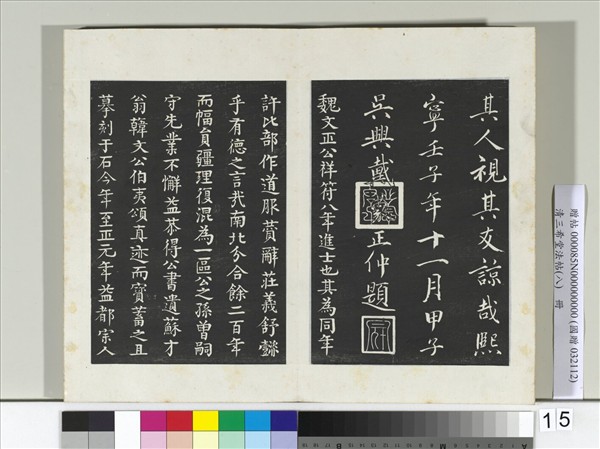 其人視其友諒哉熙
寧壬子年十一月甲子
吳興戴
正仲題
魏文正公祥符八年進士也其為同年
許比部作道服贊辭莊義舒繇
乎有德之言哉南北分合餘二百年
而幅員疆理復混為一區公之孫曾嗣
守先業不懈益恭得公書遺蘇才
翁韓文公伯夷頌真迹而寶蓄之且
摹刻于石今年至正元年益都宗人
贈帖 000085N000000000 (國贈 032112)
清三希堂法帖(八) 冊
15